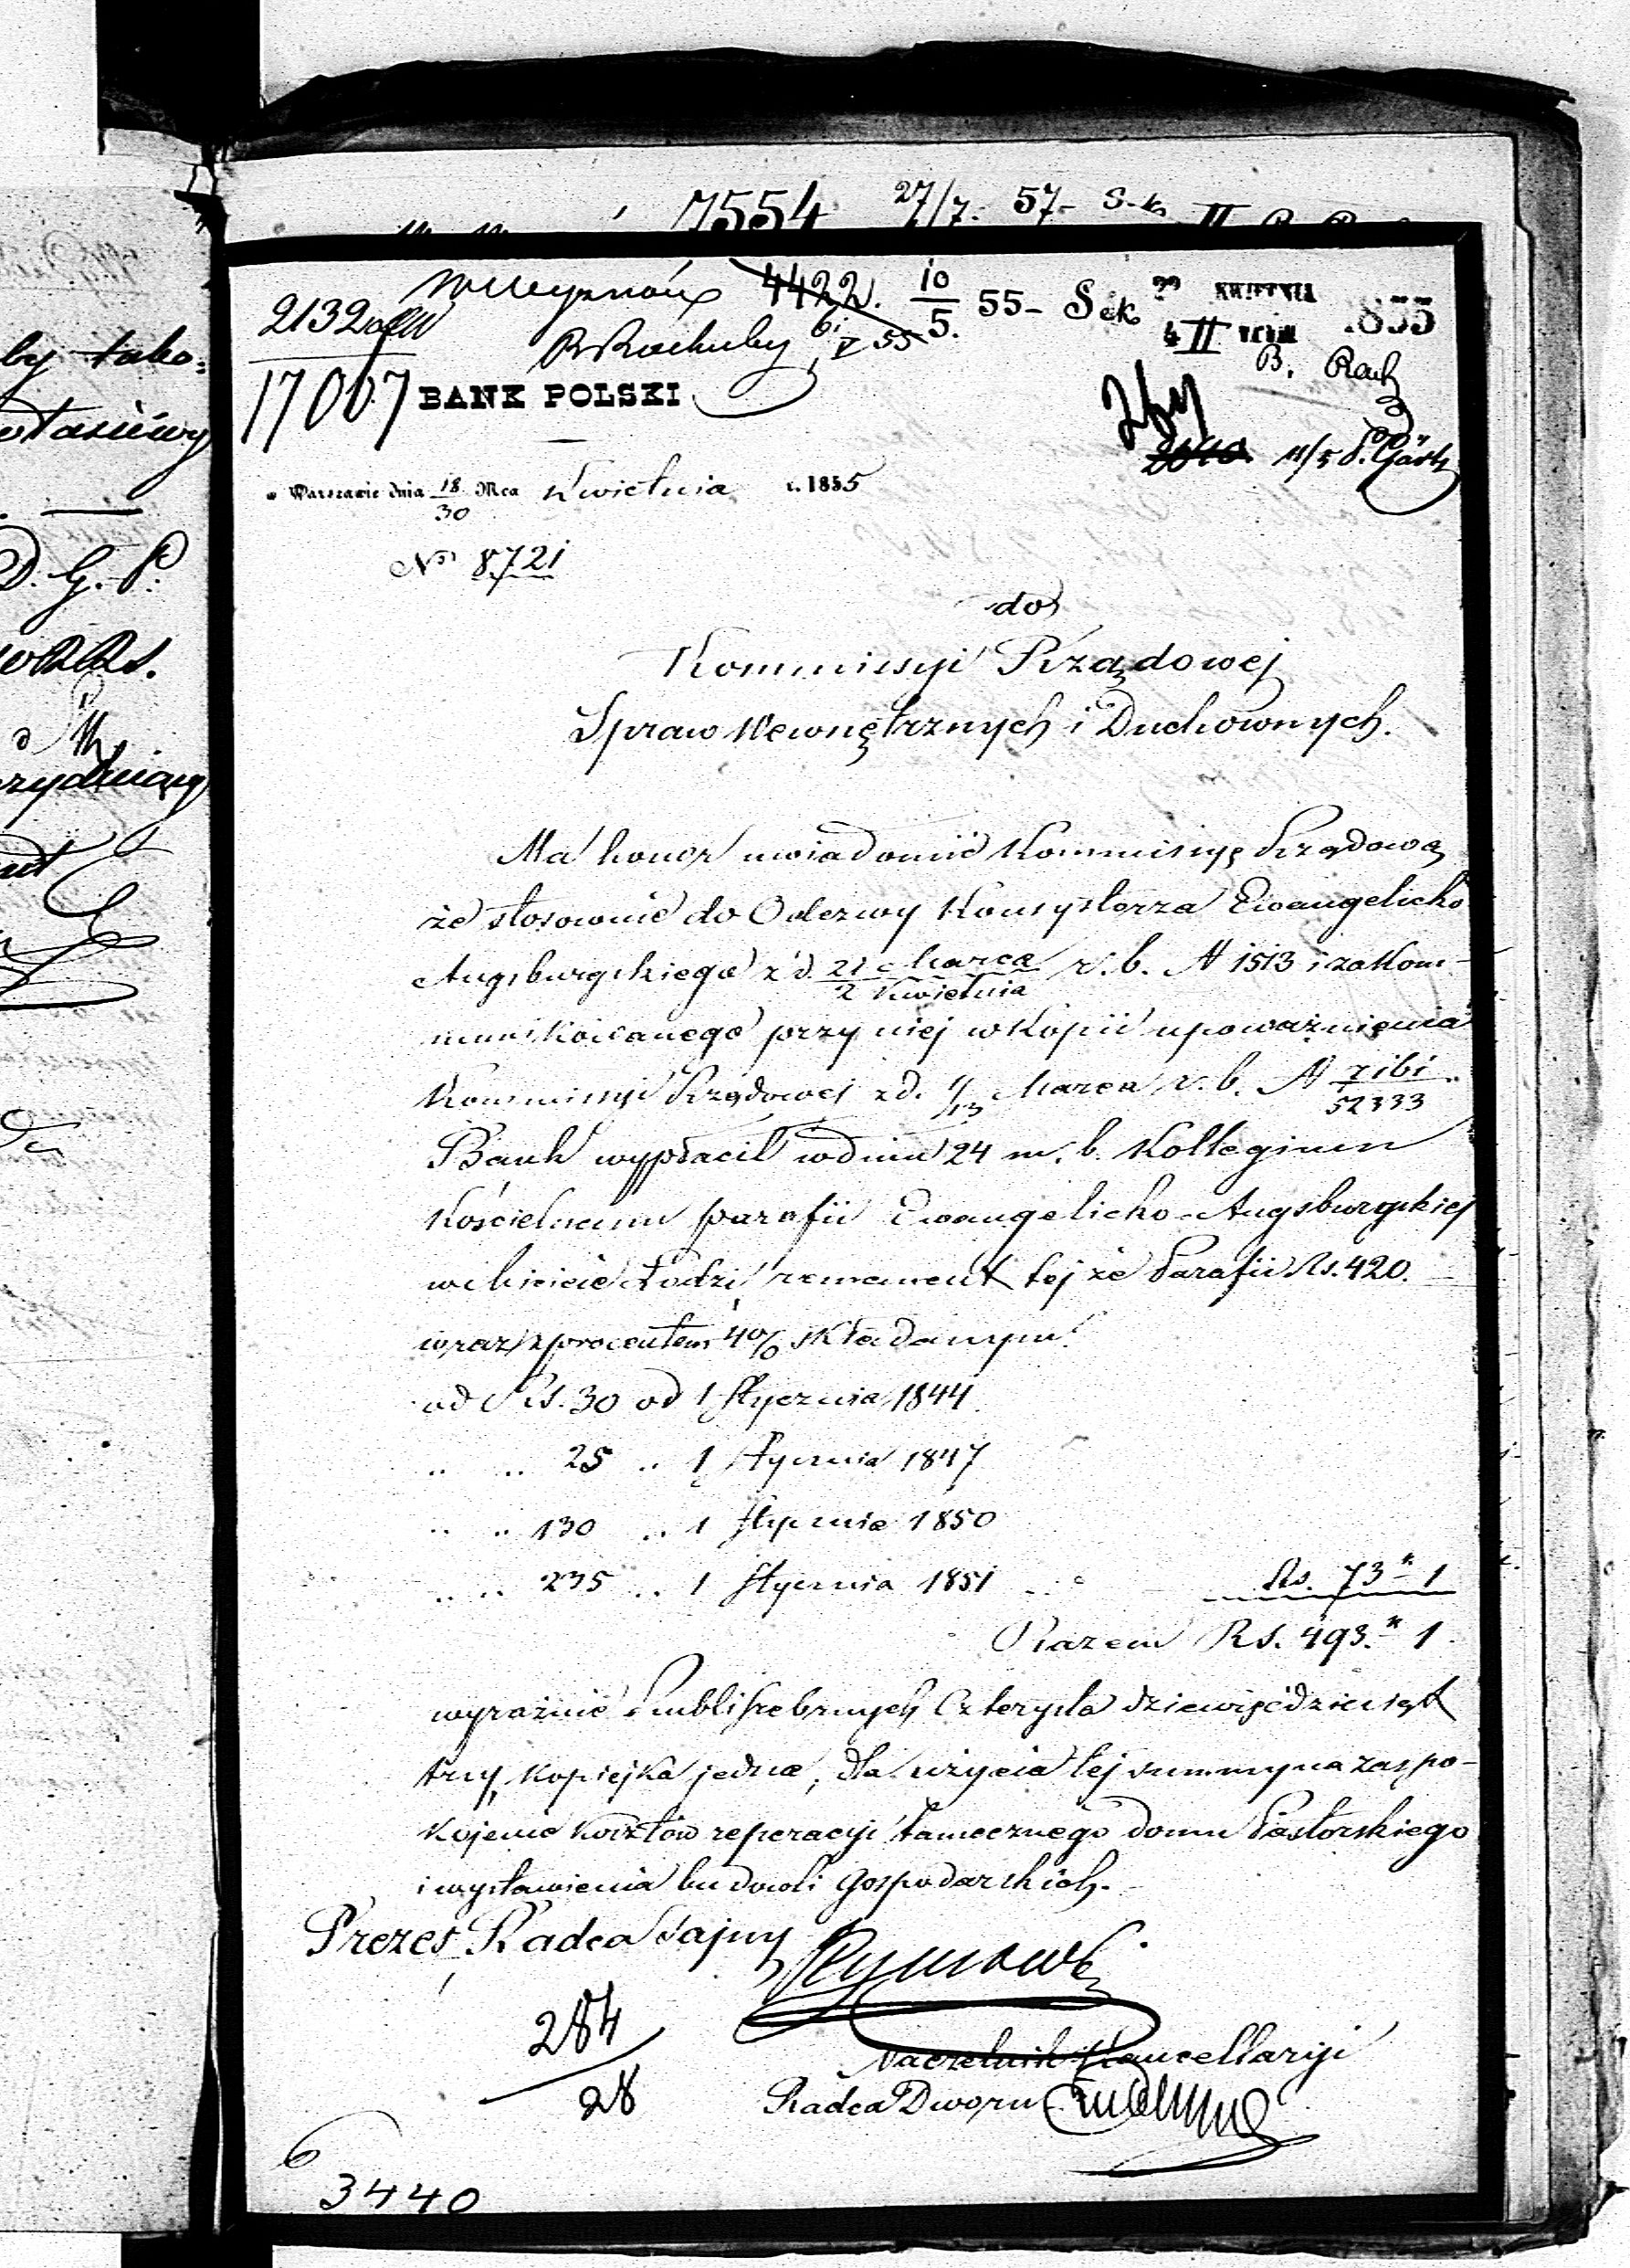 7554 27/7. 57- S-k II
4422. 10/5. 55- Sek 22 KWIETNIA 1855
2132
B Rachuby 6/V 55 4 II
B. Rach
17007 BANK POLSKI
11/5
w Warszawie dnia 18/30 Mca Kwietnia r. 1855
No 8721
do
Kommissyi Rządowej
Spraw Wewnętrznych i Duchownych.
Ma honor uwiadomić Kommissyę Rządową
że stosownie do Odezwy Konsystorza Ewangelicko
Augsburgskiego z d. 21 Marca / 2 Kwietnia r. b. N 1513 i zakom-
munikowanego przy niej w Kopii upoważnienia
Kommissyi Rządowej z d. 1/13 Marca r. b. N 52333
Bank wypłacił w dniu 24 m. b. Kollegium
Kościelnemu parafii Ewangelicko-Augsburgskiej
w Mieście Łodzi, remanent tejże Parafii Rs. 420.
wraz z procentem 4% składanym
od Rs. 30 od 1 Stycznia 1844
.. .. 25 .. 1 Stycznia 1847
.. .. 130 .. 1 Stycznia 1850
.. .. 235 .. 1 Stycznia 1851 Rs. 73 k 1
Razem Rs. 493. k 1.
wyraźnie Rubli srebrnych Czterysta dziewięćdziesiąt
trzy, kopiejka jedna, dla użycia tej summy na zaspo-
kojenie kosztów reperacyi tamecznego domu Pastorskiego
i wystawienia budowli gospodarskich.
Prezes Radca Tajny
284
28
Naczelnik Kancellaryi
Radca Dworu
3440